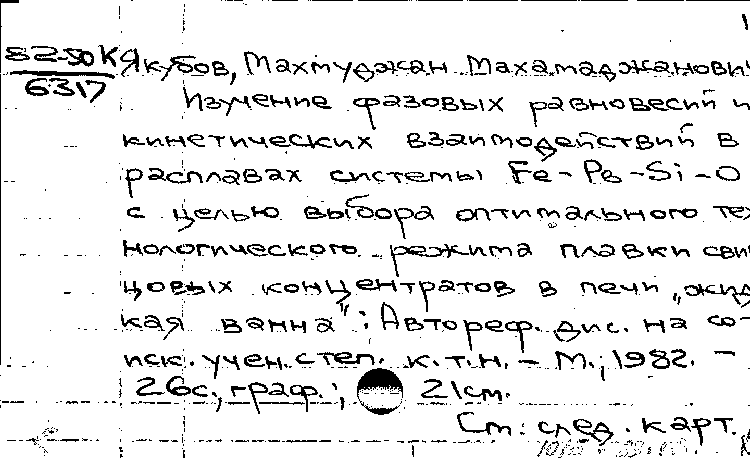 1
82-50К Якубов, Махмуджан Махамаджанович
6317
Изучение фазовых равновесий и
кинетических взаимодействий в
расплавах системы Fe-Pb-Si-O
с целью выбора оптимального тех
нологического режима плавки свин
цовых концентратов в печи „жид
кая ванна": Автореф. дис. на со-
иск. учен. степ. к.т.н. - М., 1982. -
26с., граф.; 21см.
См. след. карт.